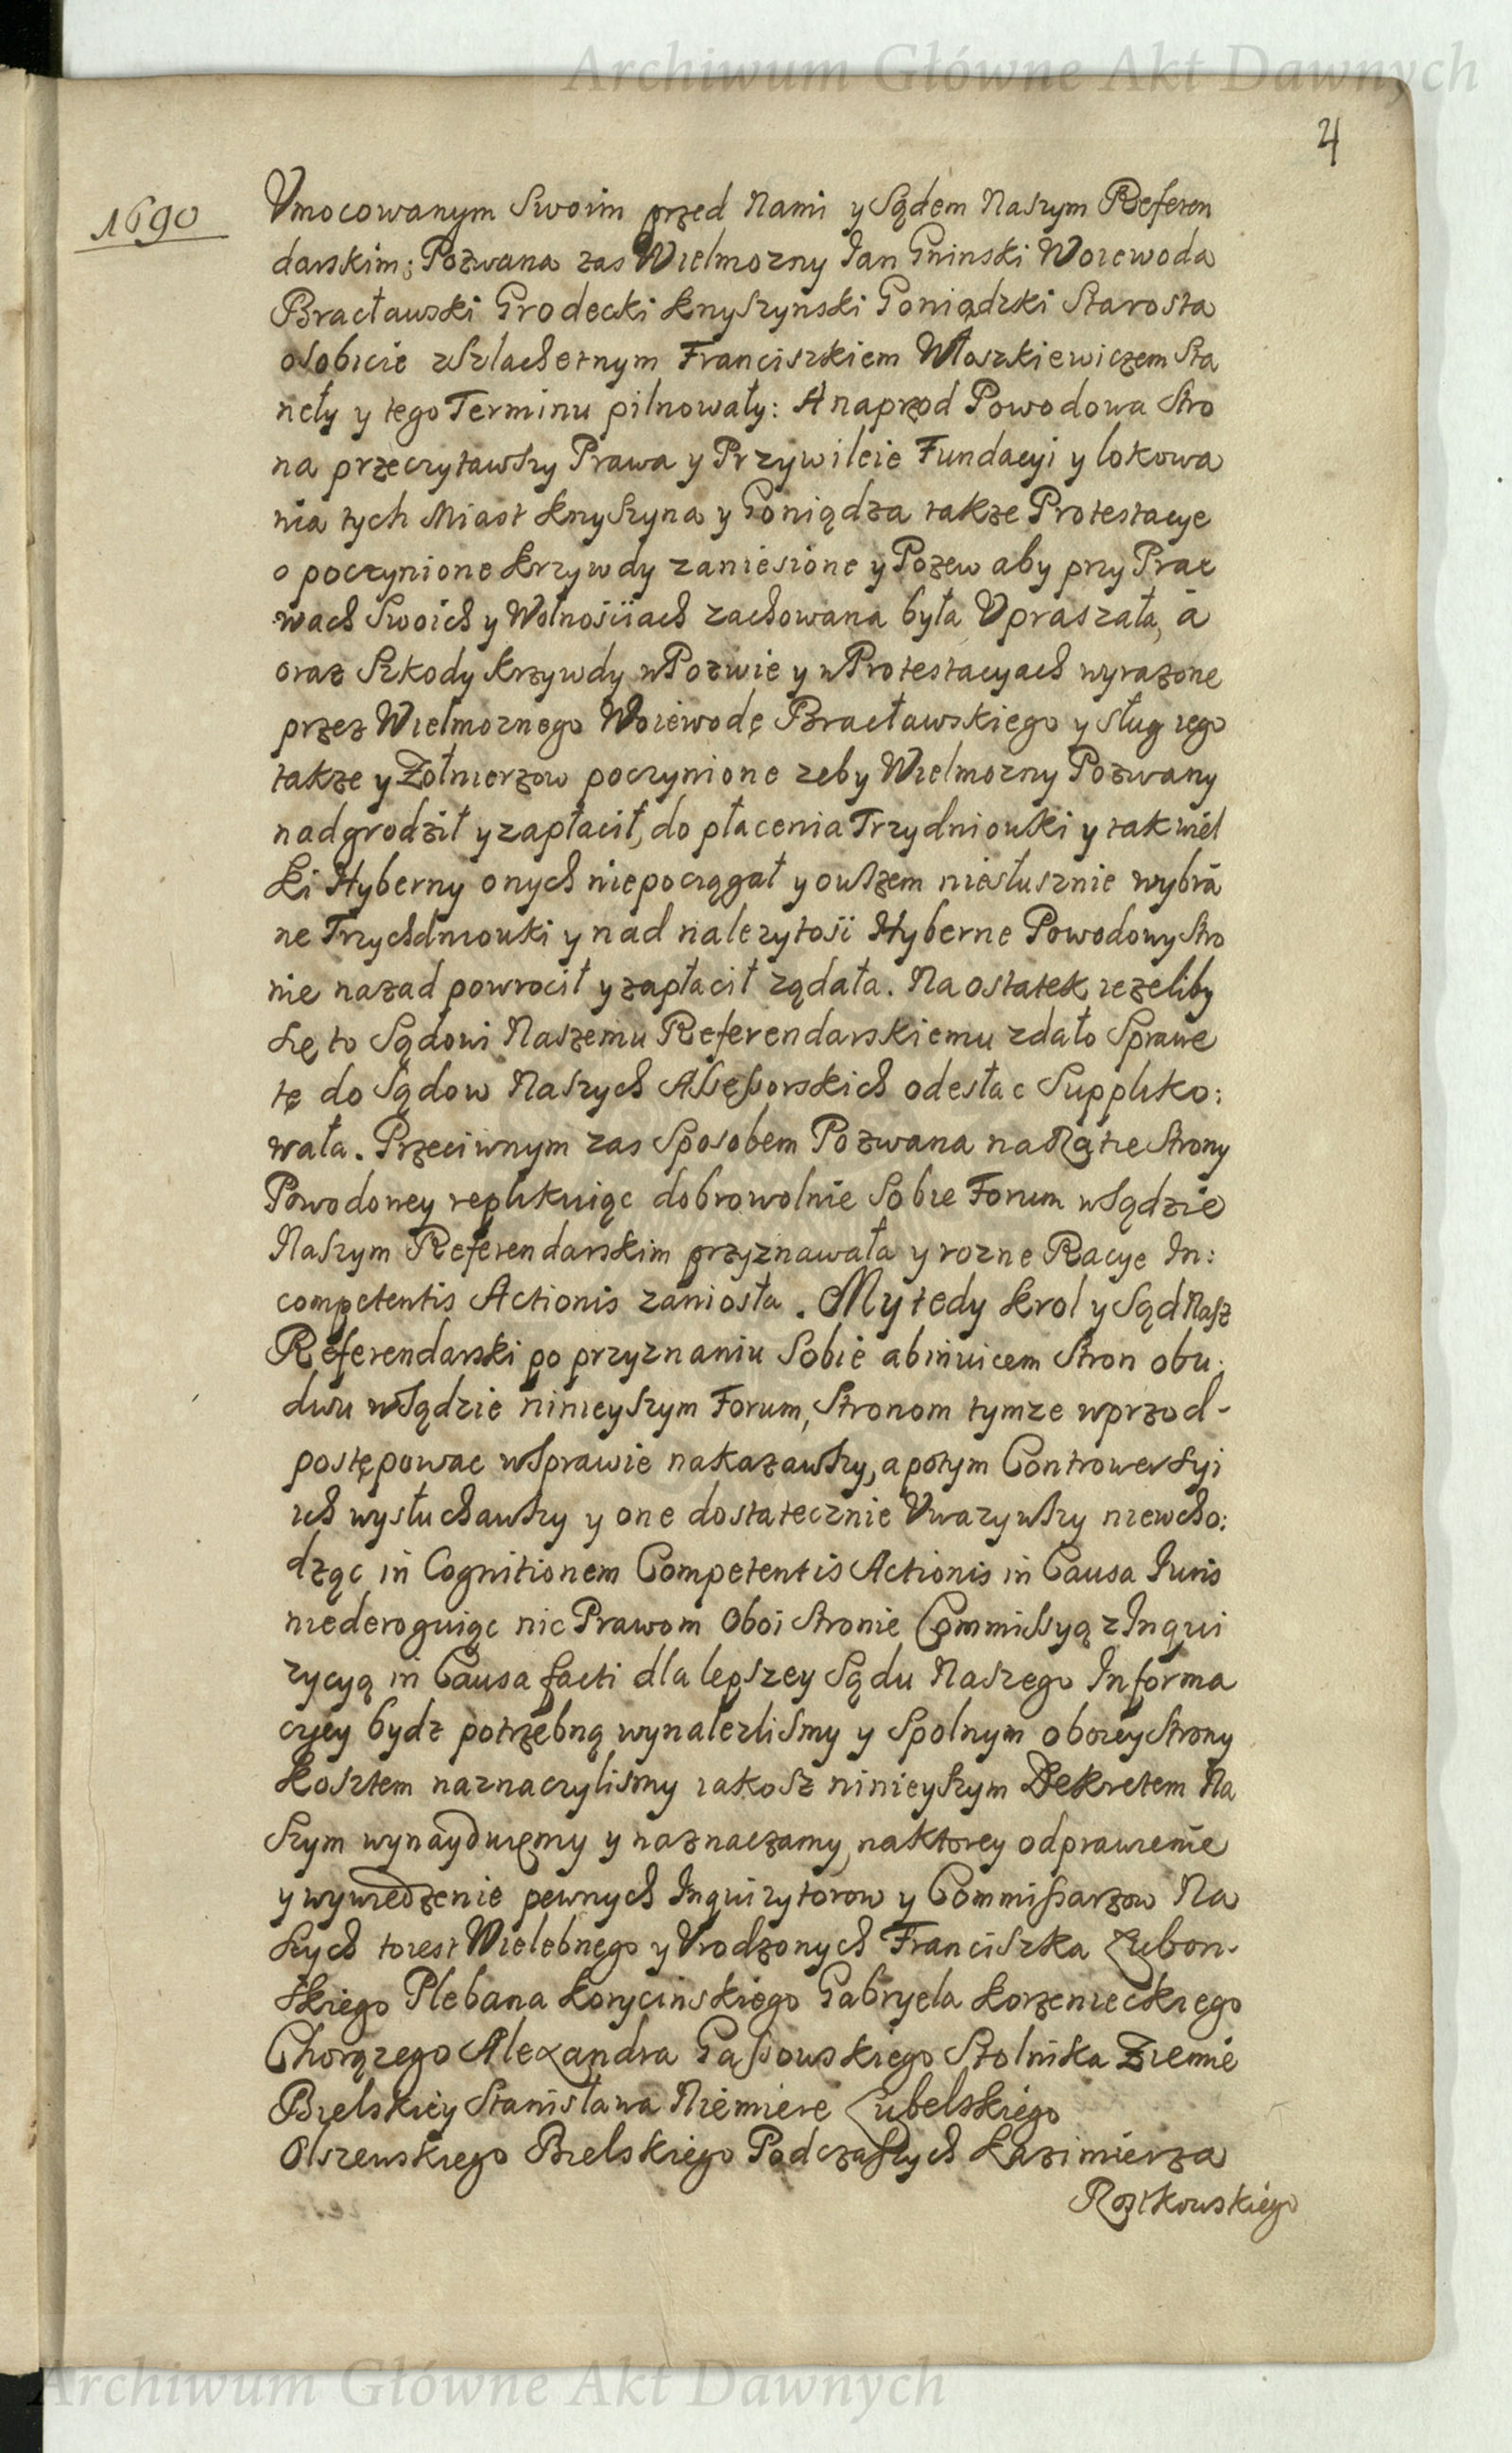 Archiwum Główne Akt Dawnych
4
1690
Vmocowanym Swoim przed Nami y Sądem Naszym Referen
darskim; Pozwana zas Wielmozny Jan Gninski Woiewoda
Bracławski Grodecki Knyszynski Goniądzki Starosta
osobicie z Szlachetnym Franciszkiem Włoszkiewiczem Sta
neły y tego Terminu pilnowały: A naprzod Powodowa Stro
na przeczytawszy Prawa y Przywileie Fundacyi y lokowa
nia tych Miast Knyszyna y Goniądza takze Protestacye
o poczynione Krzywdy zaniesione y Pozew aby przy Pra
wach Swoich y Wolnościach zachowana była Vpraszała, a
oraz Szkody Krzywdy w Pozwie y w Protestacyach wyrazone
przez Wielmoznego Woiewodę Bracławskiego y sług iego
takze y Zołnierzow poczynione zeby Wielmozny Pozwany
nadgrodził y zapłacił, do płacenia Trzydniouki y tak wiel
ki Hyberny onych niepociągał y owszem niesłusznie wybra
ne Trzychdniouki y nad nalezytośi Hyberne Powodowy Stro
nie nazad powrocił y zapłacił ządała. Na ostatek iezeliby
się to Sądowi Naszemu Referendarskiemu zdało Sprawe
tę do Sądow Naszych Assessorskich odesłac Suppliko:
wała. Przeciwnym zas Sposobem Pozwana na Racie Strony
Powodowey replikuiąc dobrowolnie Sobie Forum w Sądzie
Naszym Referendarskim przyznawała y rozne Racye In:
competentis Actionis zaniosła. My tedy Krol y Sąd Nasz
Referendarski po przyznaniu Sobie abinuicem Stron obu:
dwu w Sądzie ninieyszym Forum, Stronom tymze wprzod-
postępowac w Sprawie nakazawszy, a potym Controwersyi
ich wysłuchawszy y one dostatecznie Vwazywszy niewcho:
dząc in Cognitionem Competentis Actionis in Causa Iuris
niederoguiąc nic Prawom Oboi Stronie Commissyą z Inqui
zycyą in Causa facti dla lepszey Sądu Naszego Informa
cyey bydz potrzebną wynalezlismy y Spolnym oboiey Strony
Kosztem naznaczylismy iakosz ninieyszym Dekretem Na
szym wynayduiemy y naznaczamy, na Ktorey odprawienie
y wywiedzenie pewnych Inquizytorow y Commissarzow Na
szych toiest Wielebnego y Vrodzonych Franciszka Lubon-
skiego Plebana Korycinskiego Gabryela Korzenieckiego
Chorązego Alexandra Gassowskiego Stolnika Ziemie
Bielskiey Stanisława Niemiere Lubelskiego
Olszewskiego Bielskiego Podczaszych Kazimierza
Roszkowskiego
Archiwum Główne Akt Dawnych